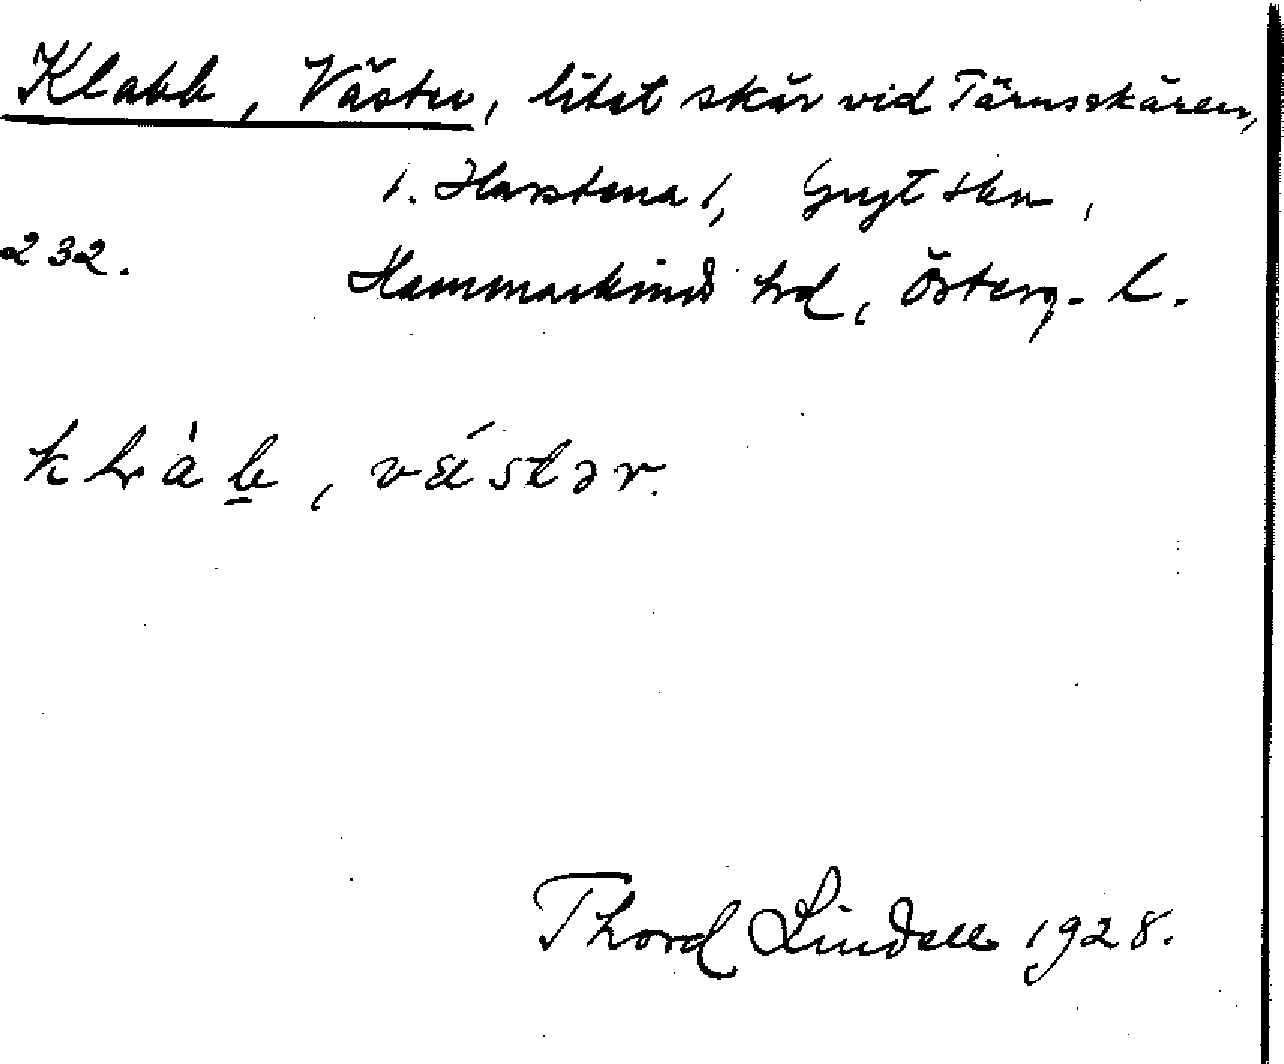 Klabb, Väster, litet skär vid Tärnsskären,
1. Harstena 1, Gryt skn,
232.
Hammarkinds hd, Österg. l.
klàb, västər.
Thord Lindell 1928.